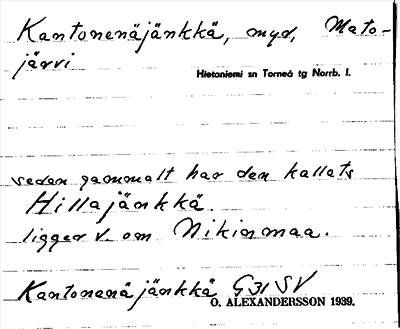 Kantonenäjänkkä, myr, Mato-
järvi
Hietaniemi sn Torneå tg Norrb. l.
sedan gammalt har den kallats
Hillajänkkä.
ligger v. om Nikinmaa.
Kantonenäjänkkä G31 SV
O. ALEXANDERSSON 1939.